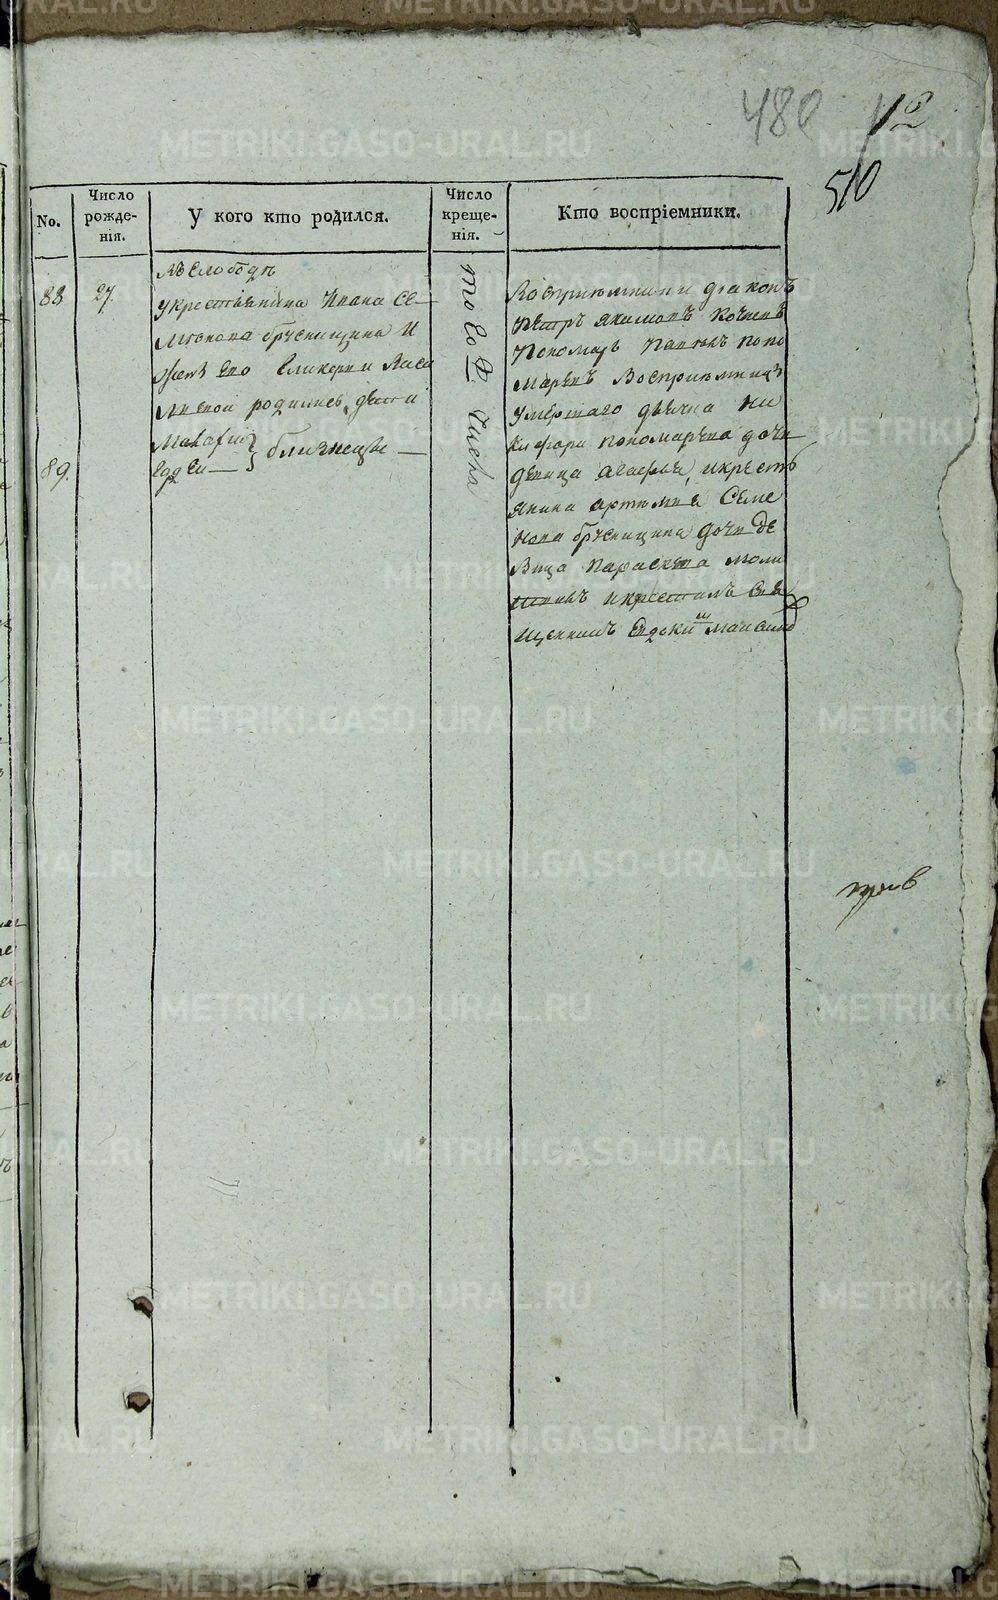 480
510
No.
Число рожде-нія.
У кого кто родился.
Число креще-нія.
Кто воспріемники.
88
27.
89.
въ Слободѣ
у крестьянина Ивана Се
менова брусницина и
женѣ его Гликерии Васи
лиевой родились дети
близнецы
того ж числа
Восприемники диаконъ
Петръ Якимовъ
Пономарь Павелъ поно
маревъ Восприемницы
умершаго дьячка Ни
кифора пономарева дочь
девица Агафья, и кресть
янина артемия Семе
нова брусницина дочь де
вица параскева моли
твилъ и крестилъ Свя
щенникъ
METRIKI.GASO-URAL.RU